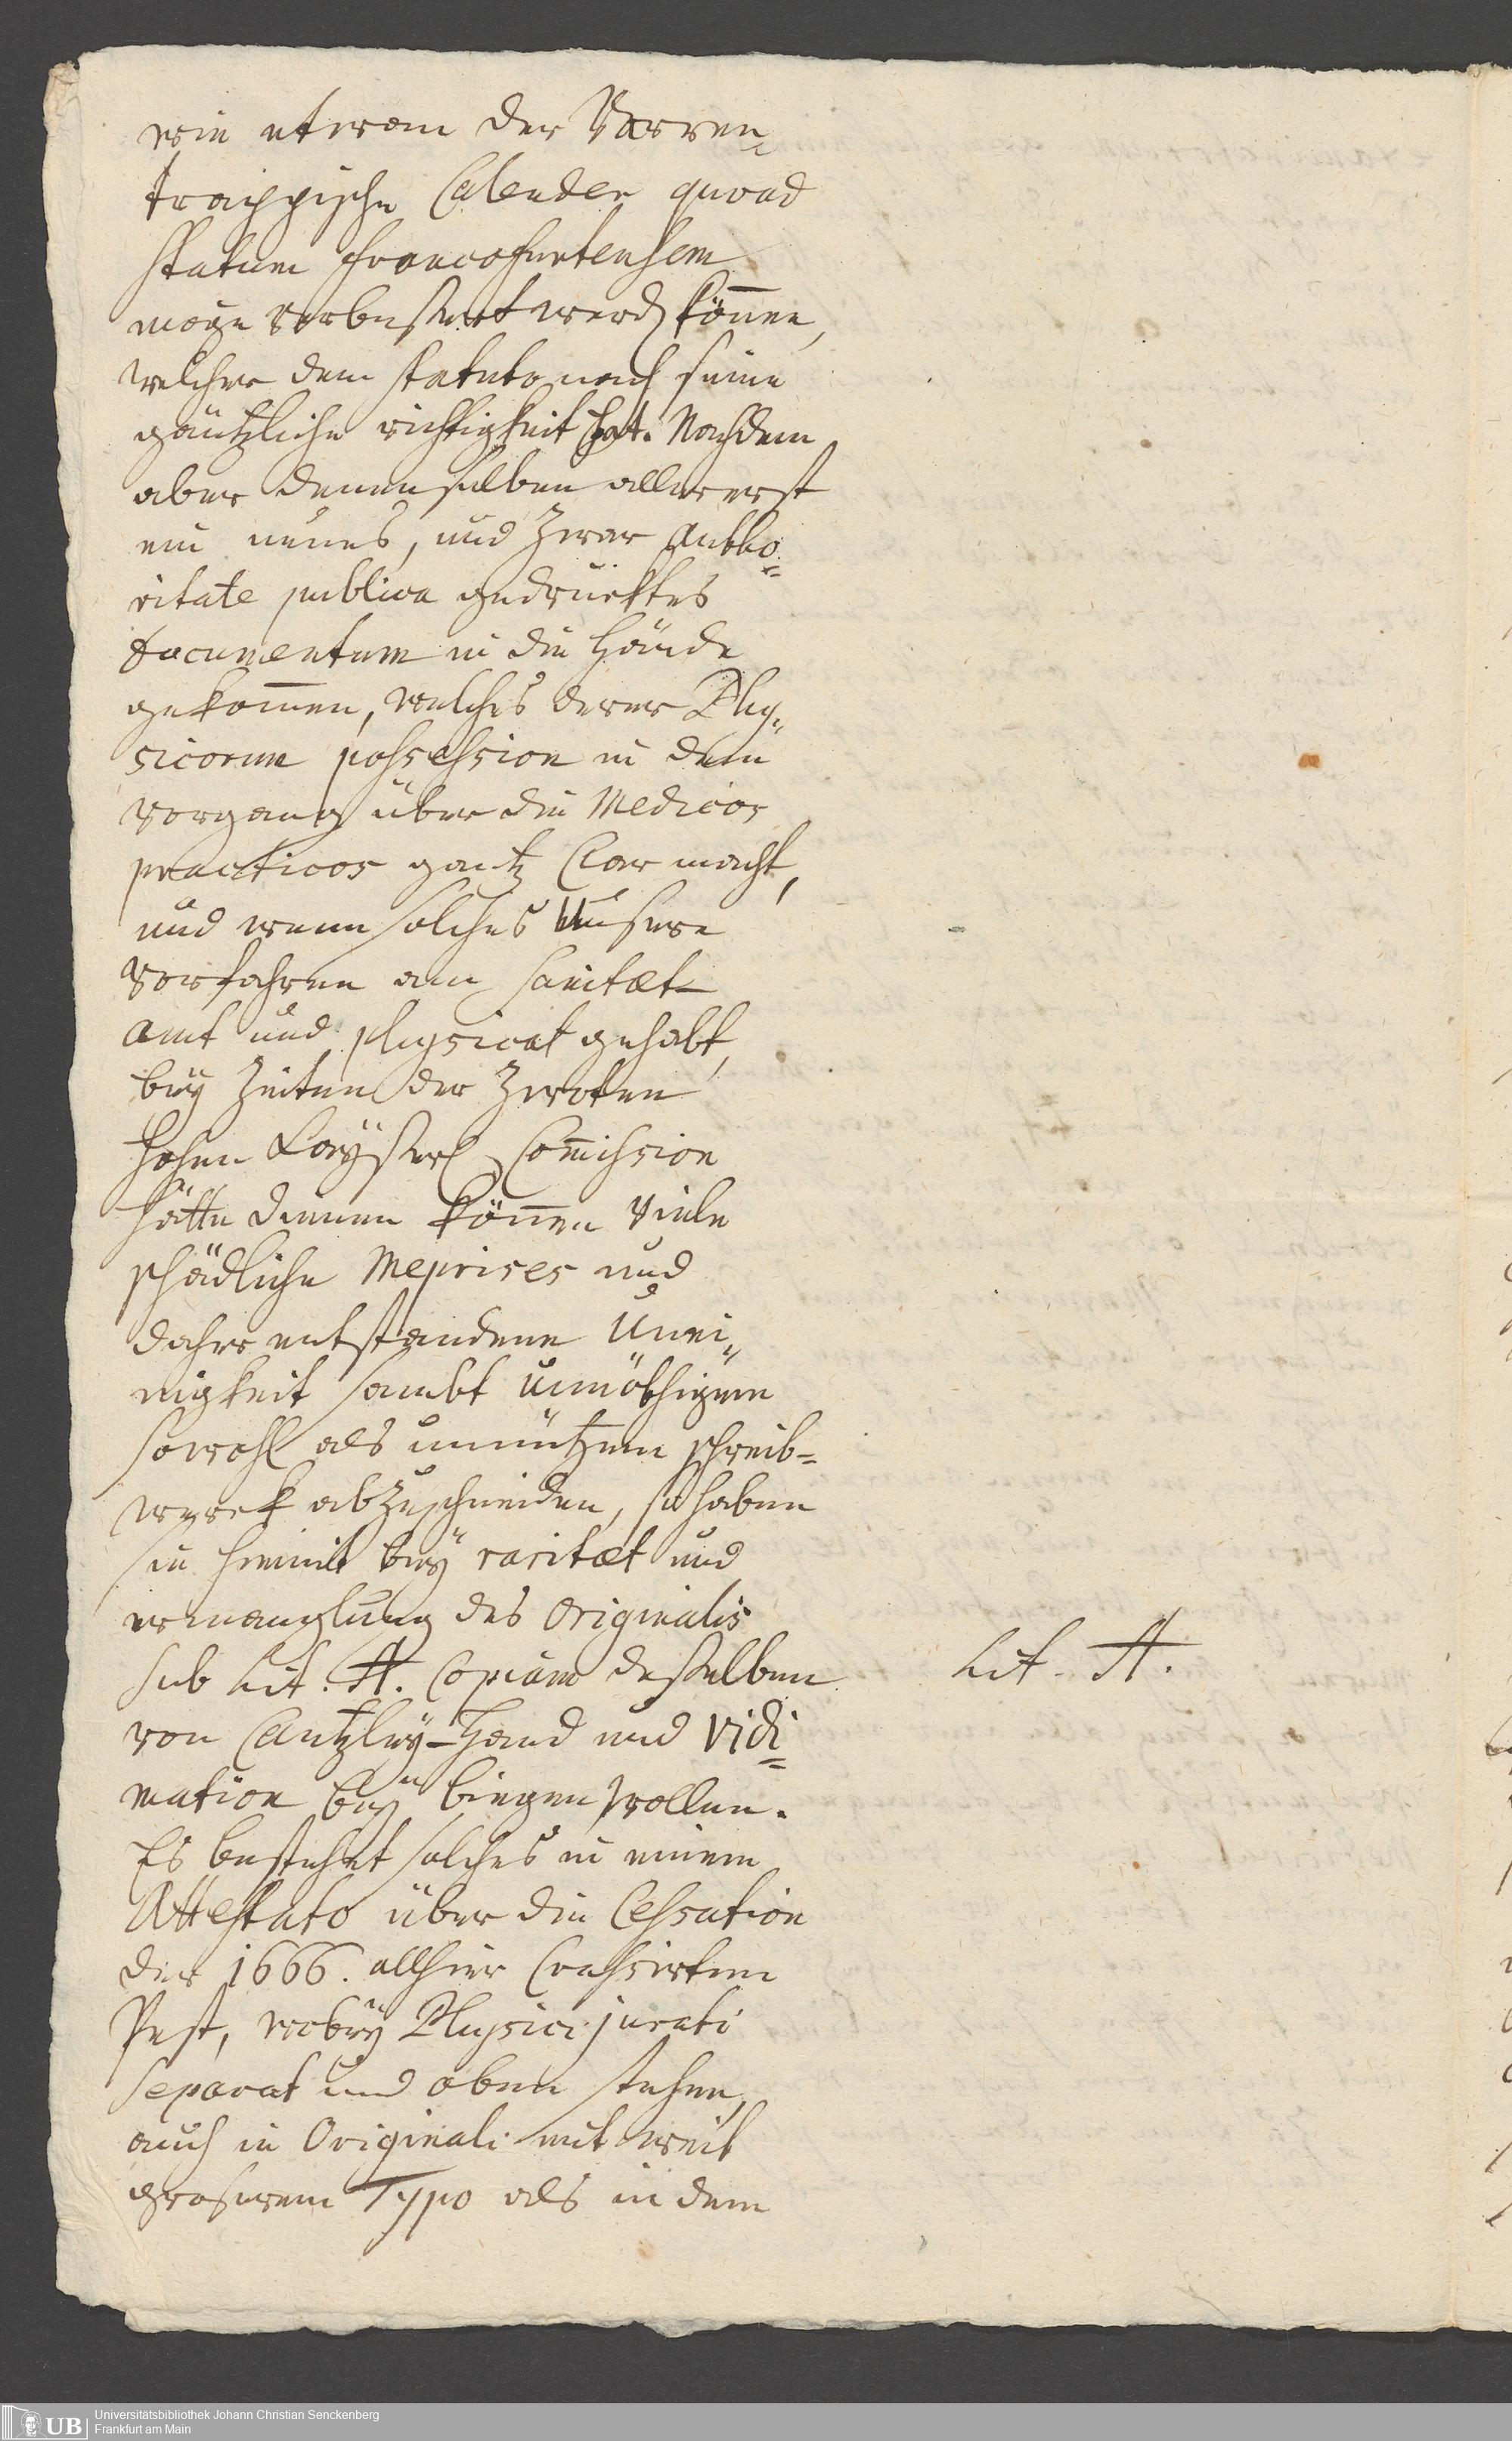 wie etwam der Varren„
trappische Calender quoad
statum francofurtensem
möge verbessert werd können,
welcher dem statuto nach seine
gäntzliche richtigkeit hat. Nachdem
aber denenselben allererst
ein neües, und zwar autho=
ritate publica gedrucktes
documentum in die Hände
gekommen, welches derer Phy„
sicorum possession in dem
vorgang über die Medicos
practicos gantz Clar macht,
und wenn solches Unsere
Vorfahren am Sanitæt-
amt und physicat gehabt,
beÿ Zeiten der Zwoten
hohen Kaÿserl. Commission
hätte dienen können viele
schädliche Meprises und
daher entstandene Unei„
nigkeit sambt unnöthigem
sowohl als unnützem schreib=
werck abzuschneiden, so haben
sie hiemit beÿ raritæt und
ermanglung des Originalis
sub Lit. A. Copiam desselben
von Cantzleÿ-Hand und Vidi=
mation beÿ biegen wollen.
Es bestehet solches in einem
Attestato über die Cessation
der 1666. allhier Crassirten
Pest, wobeÿ Physici jurati
separat und oben stehen,
auch in Originali mit weit
groserem Typo als in dem
Lit. A.
UB
Universitätsbibliothek Johann Christian Senckenberg
Frankfurt am Main